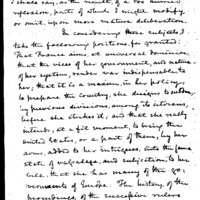 I shall say, as the result, of a too hurried
reflexion, part of which I might modify
or omit, upon more mature deliberation.
In considering these subjects, I
take the following positions, for granted:
That France aims at universal Dominion,
that the vices of her government, and nature
of her system, render war indispensable to
her; that it is a maxim, in her policy
to prepare the country, she designs to
by previous divisions, among its citizens,
before she strikes it; and that she really
intends, at a fit moment, to bring the
United States, or a part of them, by her
arms, added to her intrigues, into the same
state of vassalage, and subjection, to her
will, that she has many of the go-
vernments of Europe. The history, of the
proceedings of the successive rulers